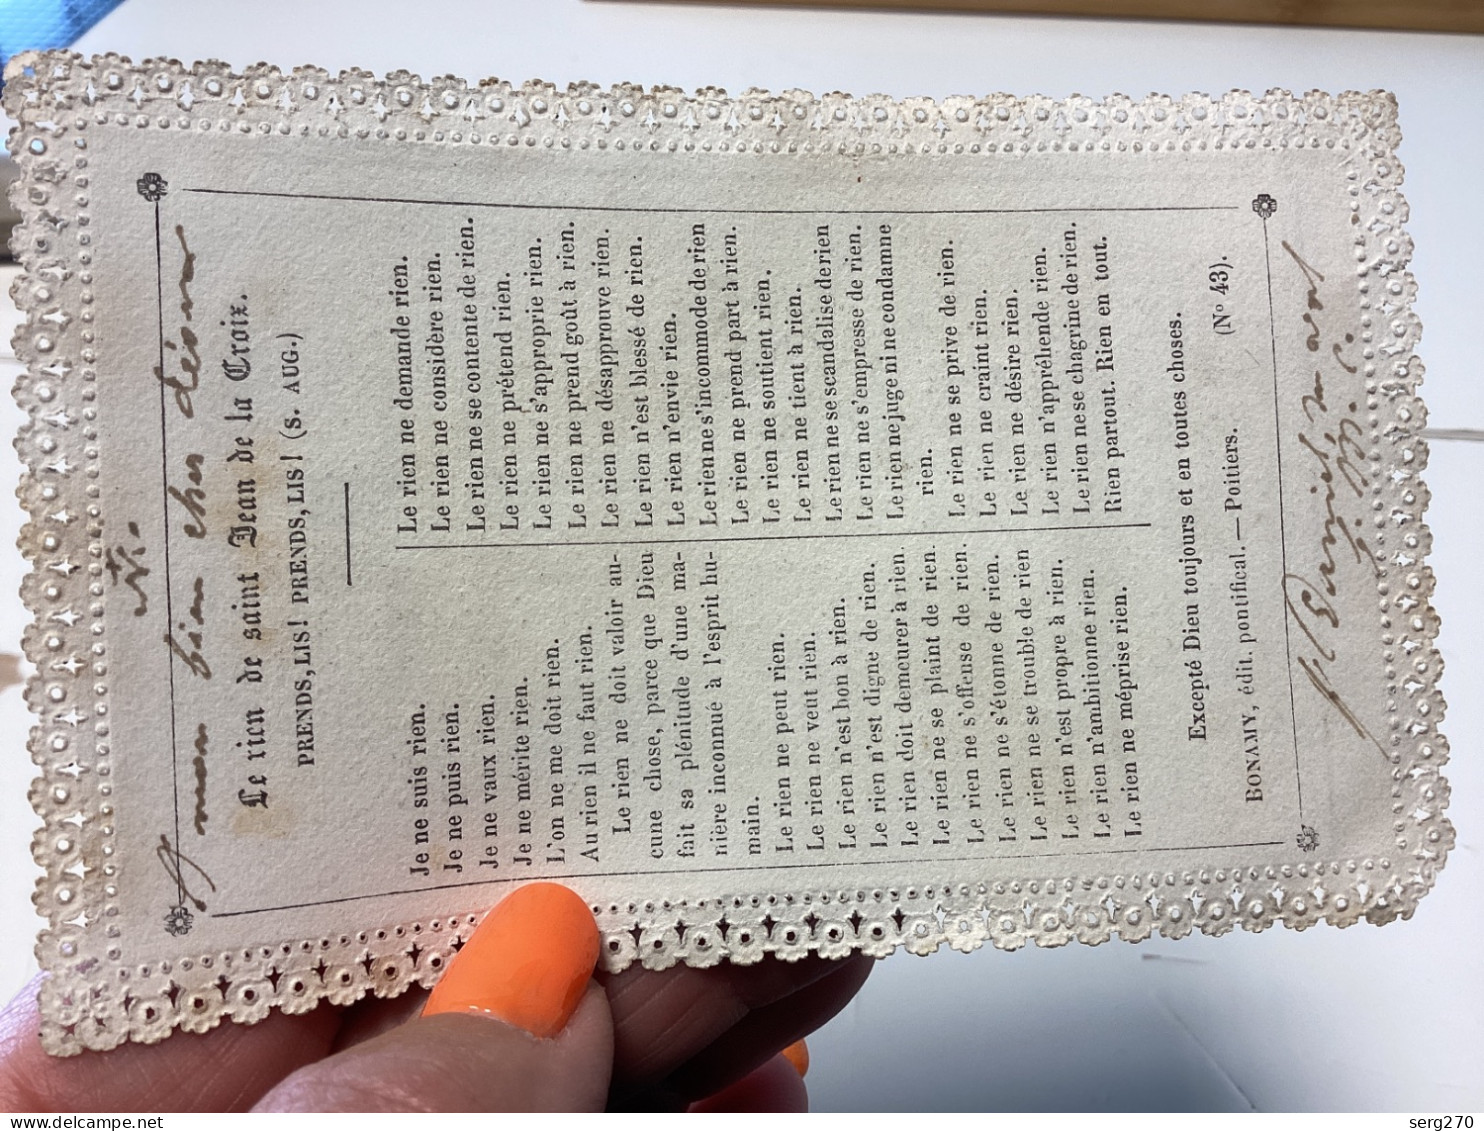 A mon bien cher désir
Le rien de saint Jean de la Croix.
PRENDS, LIS! PRENDS, LIS! (S. AUG.)
Je ne suis rien.
Je ne puis rien.
Je ne vaux rien.
Je ne mérite rien.
L'on ne me doit rien.
Au rien il ne faut rien.
Le rien ne doit valoir au-
cune chose, parce que Dieu
fait sa plénitude d'une ma-
nière inconnué à l'esprit hu-
main.
Le rien ne peut rien.
Le rien ne veut rien.
Le rien n'est bon à rien.
Le rien n'est digne de rien.
Le rien doit demeurer à rien.
Le rien ne se plaint de rien.
Le rien ne s'offense de rien.
Le rien ne s'étonne de rien.
Le rien ne se trouble de rien
Le rien n'est propre à rien.
Le rien n'ambitionne rien.
Le rien ne méprise rien.
Le rien ne demande rien.
Le rien ne considère rien.
Le rien ne se contente de rien.
Le rien ne prétend rien.
Le rien ne s'approprie rien.
Le rien ne prend goût à rien.
Le rien ne désapprouve rien.
Le rien n'est blessé de rien.
Le rien n'envie rien.
Le rien ne s'incommode de rien
Le rien ne prend part à rien.
Le rien ne soutient rien.
Le rien ne tient à rien.
Le rien ne se scandalise de rien
Le rien ne s'empresse de rien.
Le rien ne juge ni ne condamne
rien.
Le rien ne se prive de rien.
Le rien ne craint rien.
Le rien ne désire rien.
Le rien n'appréhende rien.
Le rien ne se chagrine de rien.
Rien partout. Rien en tout.
Excepté Dieu toujours et en toutes choses.
BONAMY, édit. pontifical. — Poitiers. (N° 43).
serg270